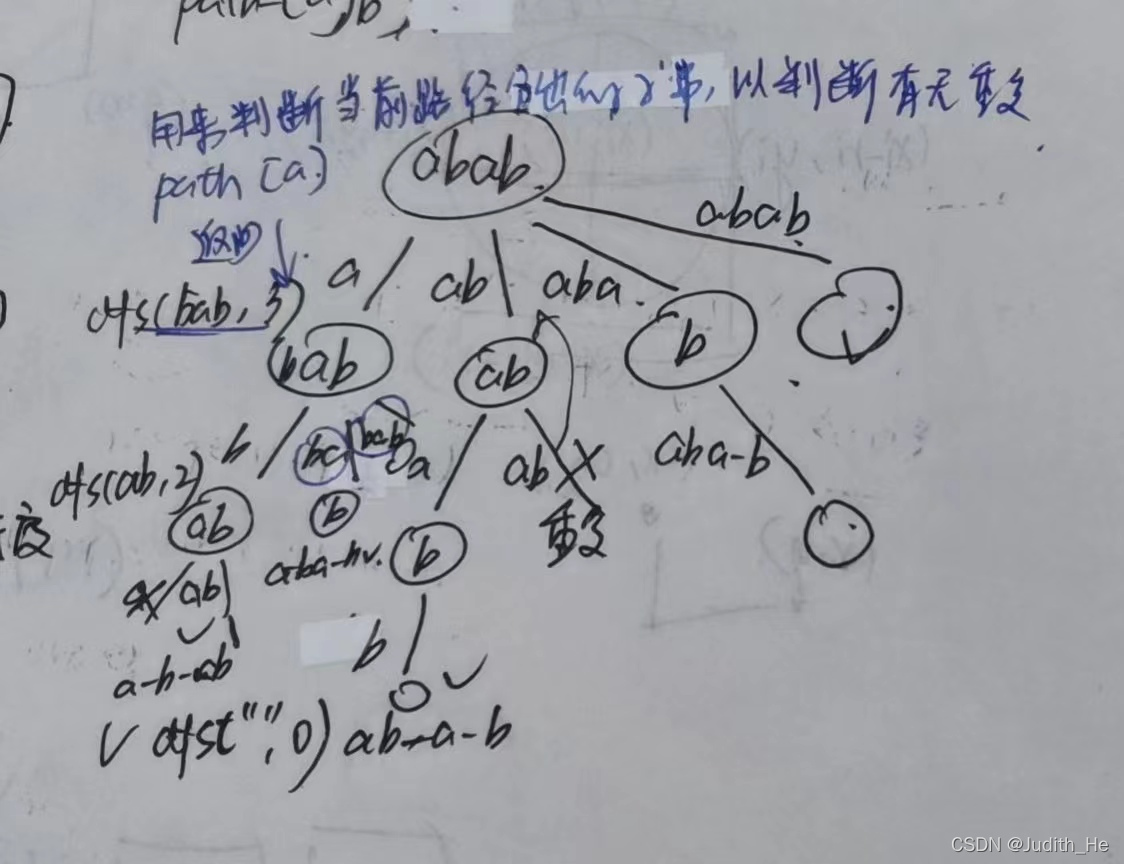 path (a,b,
用来判断当前路经包他的子串,以判断有无重复
path (a)
abab
abab
返回
a
ab
aba
dfs(bab, 3)
bab
ab
b
b
ba
bab
a
ab
aba-b
dfs(ab,2)
ab
b
b
重复
度
ab
b
a-b-ab
dfs("",0)
ab-a-b
CSDN @Judith_He